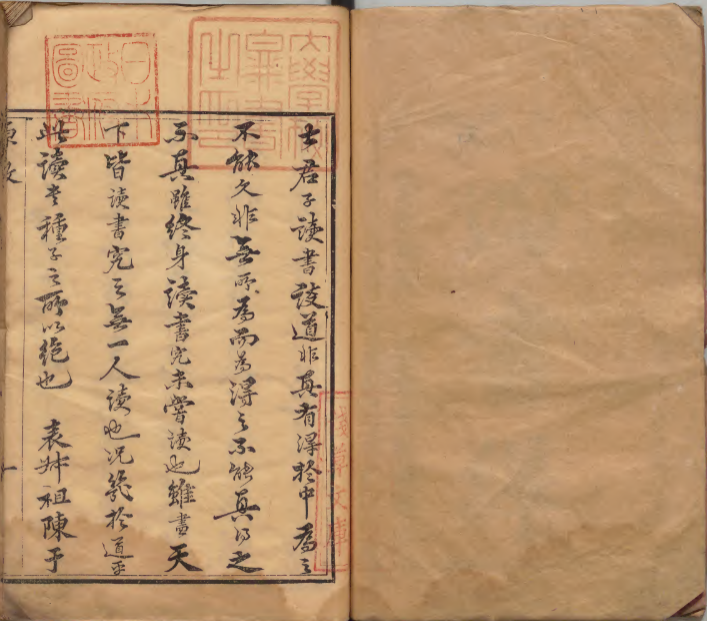 士君子讀書談道非真有得於中為之
不能文非無所為而為得之不能真得之
不真雖終身讀書究未嘗讀也雖盡天
下皆讀書究之無一人讀也况幾於道乎
此讀書種子之所以絶也 表叔祖陳于
一
日本
政府
圖書
淺草文庫